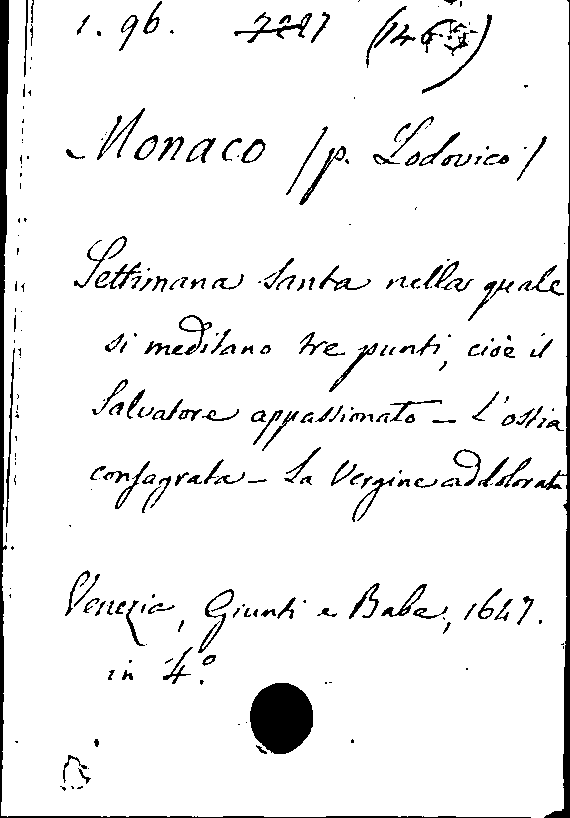 1. 96. 7227 (146
Monaco (p. Lodovico)
Settimana Santa nella quale
si meditano tre punti, cioè il
Salvatore appassionato — L'ostia
consagrata — La Vergine addolorata
Venezia, Giunti e Baba, 1647.
in 4.º